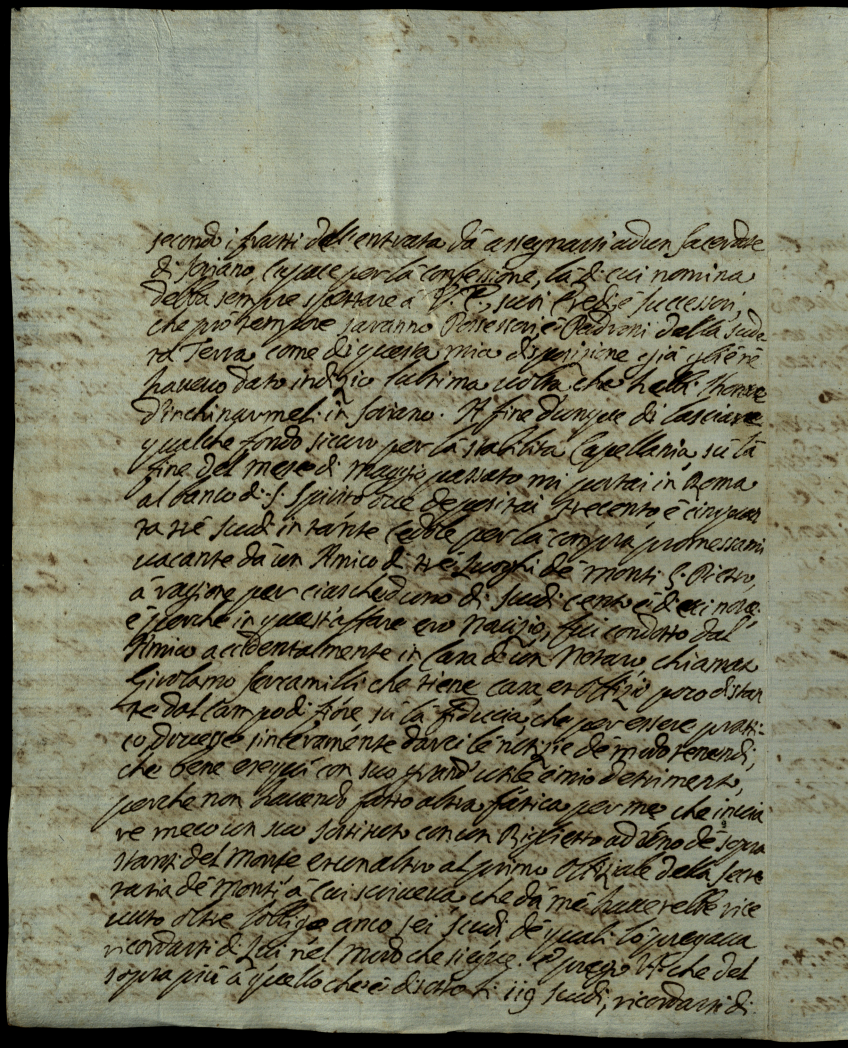 secondo i frutti dell'entrata dà assegnarsi ad un sacerdote
di Soriano, capace per la confessione, la di cui nomina
debba sempre spettare à V. E., suoi Eredi, è successori,
che prò tempore saranno Possessori, è Padroni della sude-
ta Terra come di questa mia disposizione già gliene
havevo dato indizio l'ultima volta che hebbi l'honore
d'inchinarmeli in Soriano. A fine dunque di lasciare
qualche fondo sicuro per la stabilita Capellania, sù la
fine del mese di Maggio passato mi portai in Roma
al banco di S. Spirito dove depositai trecento, è cinquan
ta trè scudi in tante cedole per la compra promessami
vacante dà un Amico di trè Luoghi de Monti S. Pietro,
à ragione per ciascheduno di scudi cento è dieci nove.
è perche in quest'affare ero Novizio, fui condotto dal
Amico accidentalmente in Casa di un Notaro chiamato
Girolamo Serramilli che tiene casa, et Offizio poco distan
te dal Campo di fiore, sù la fiducia, che per essere pratti-
co dovesse sinceramente darci le notizie de modo tenendi,
che bene eseguì con suo grand'utile è mio detrimento,
perche non havendo fatto altra fatica per me che invia
re meco un suo sostituto con un Biglietto ad uno de sopra
stanti del Monte et un altro al primo Offiziale della Secre
taria de Monti à cui scriveva che dà mè haverebbe rice
vuto oltre l'obligo anco sei scudi de quali lo pregava
ricordarsi di Lui nel modo che siegue. è prego VS che del
sopra più à quello che è di sotto li 119 scudi, ricordarsi di